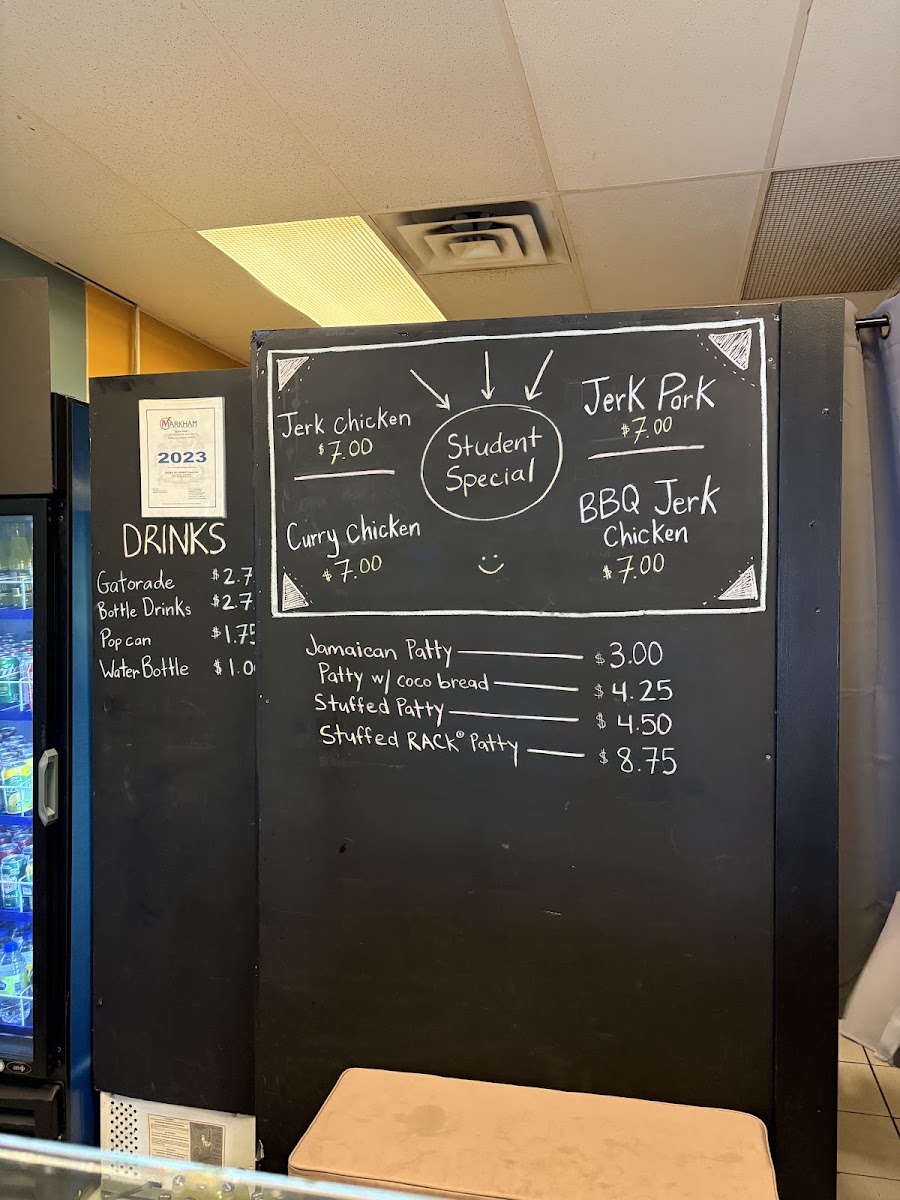 MARKHAM
2023
DRINKS
Gatorade $2.7
Bottle Drinks $2.7
Pop can $1.75
Water Bottle $1.0
Jerk Chicken
$7.00
Student
Special
Jerk Pork
$7.00
Curry Chicken
$7.00
BBQ Jerk
Chicken
$7.00
Jamaican Patty $3.00
Patty w/ coco bread $4.25
Stuffed Patty $4.50
Stuffed RACK® Patty $8.75